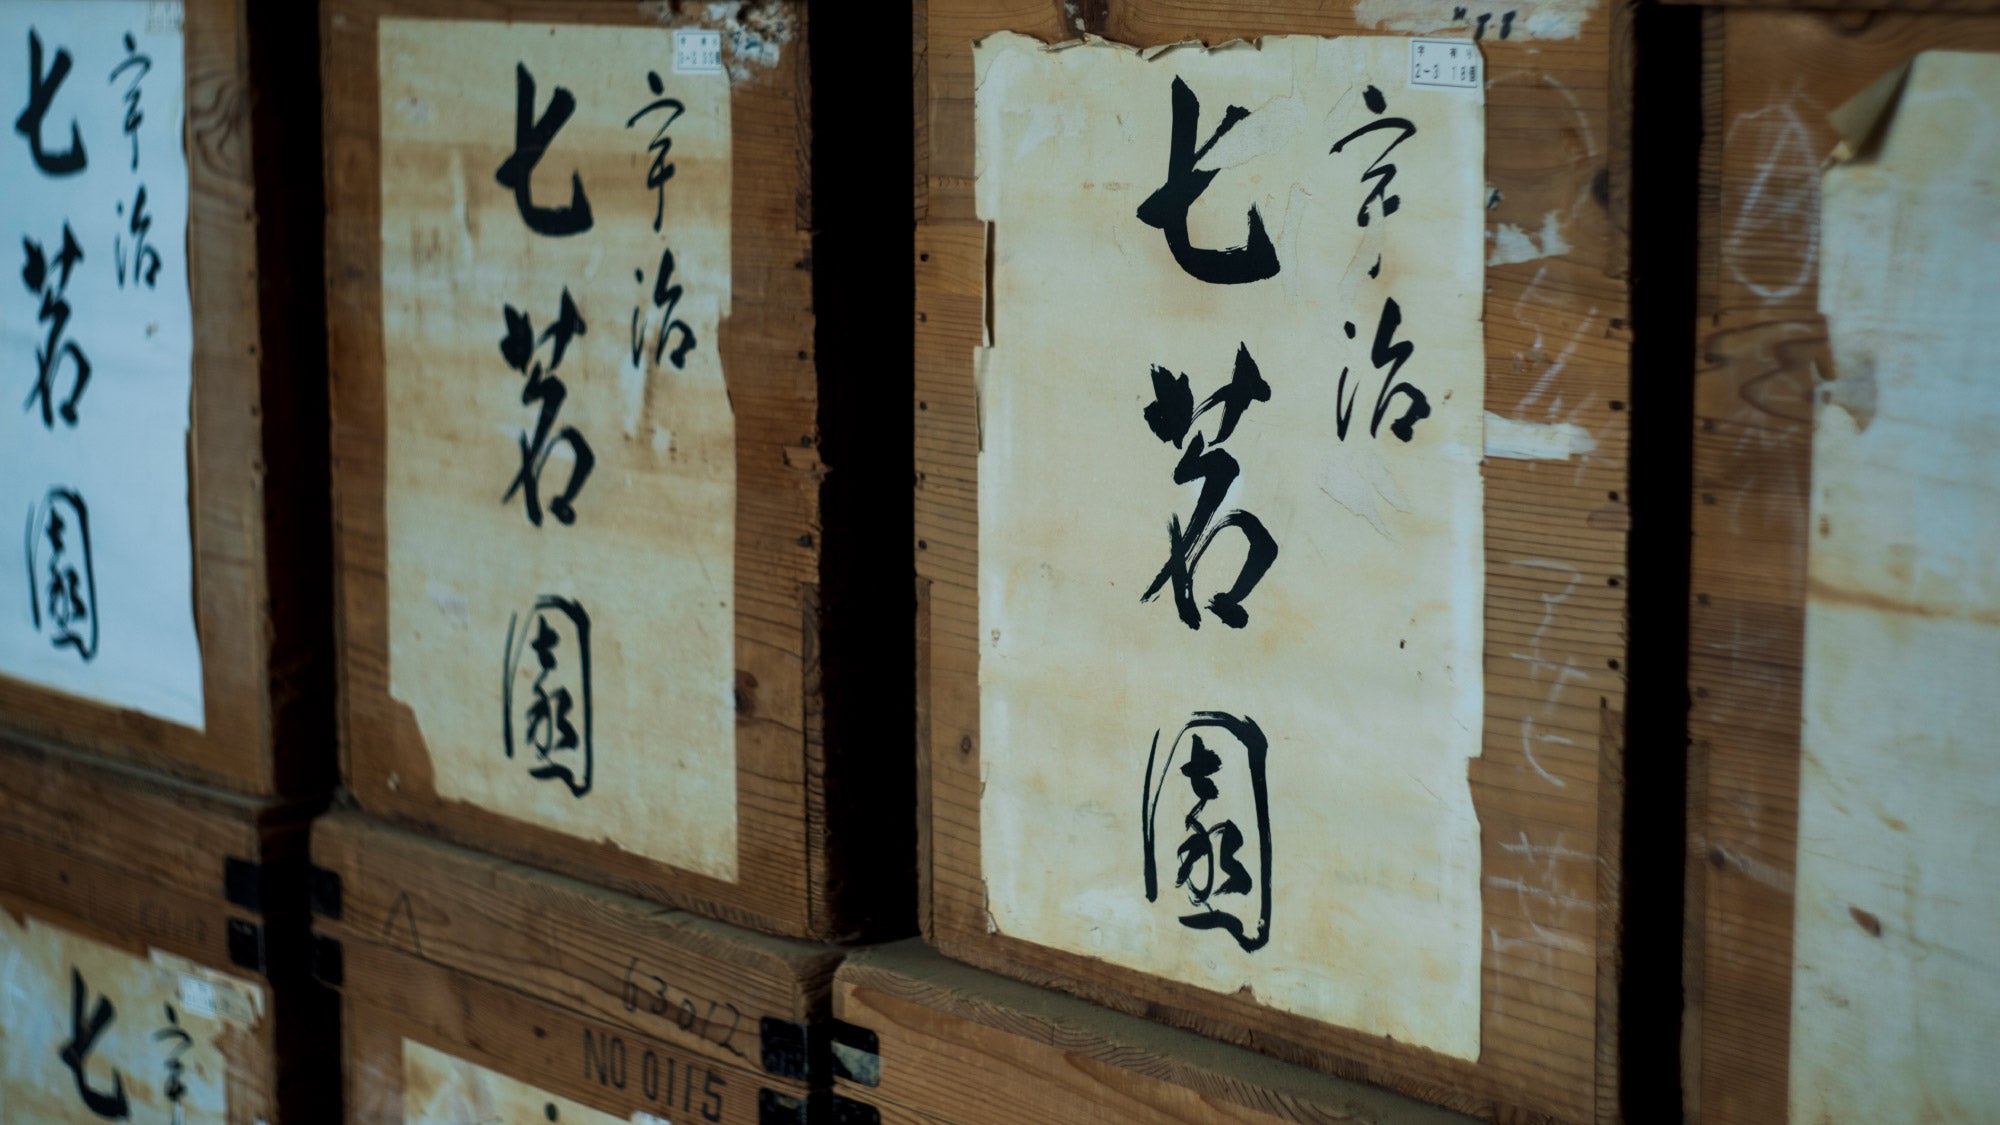 宇治
七茗園
宇治
七茗園
宇治
七茗園
63012
NO 0115
七
宇